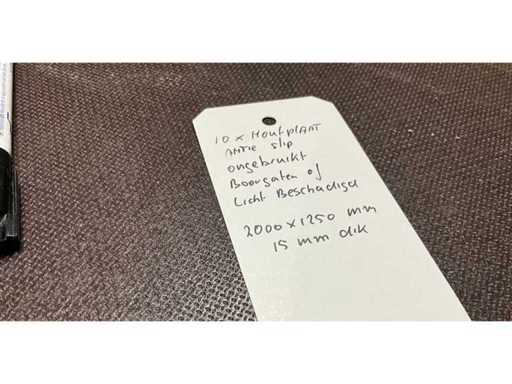 10 x Houtplaat
Antie slip
ongebruikt
Boorgaten of
Licht Beschadigd
2000 x 1250 mm
15 mm dik